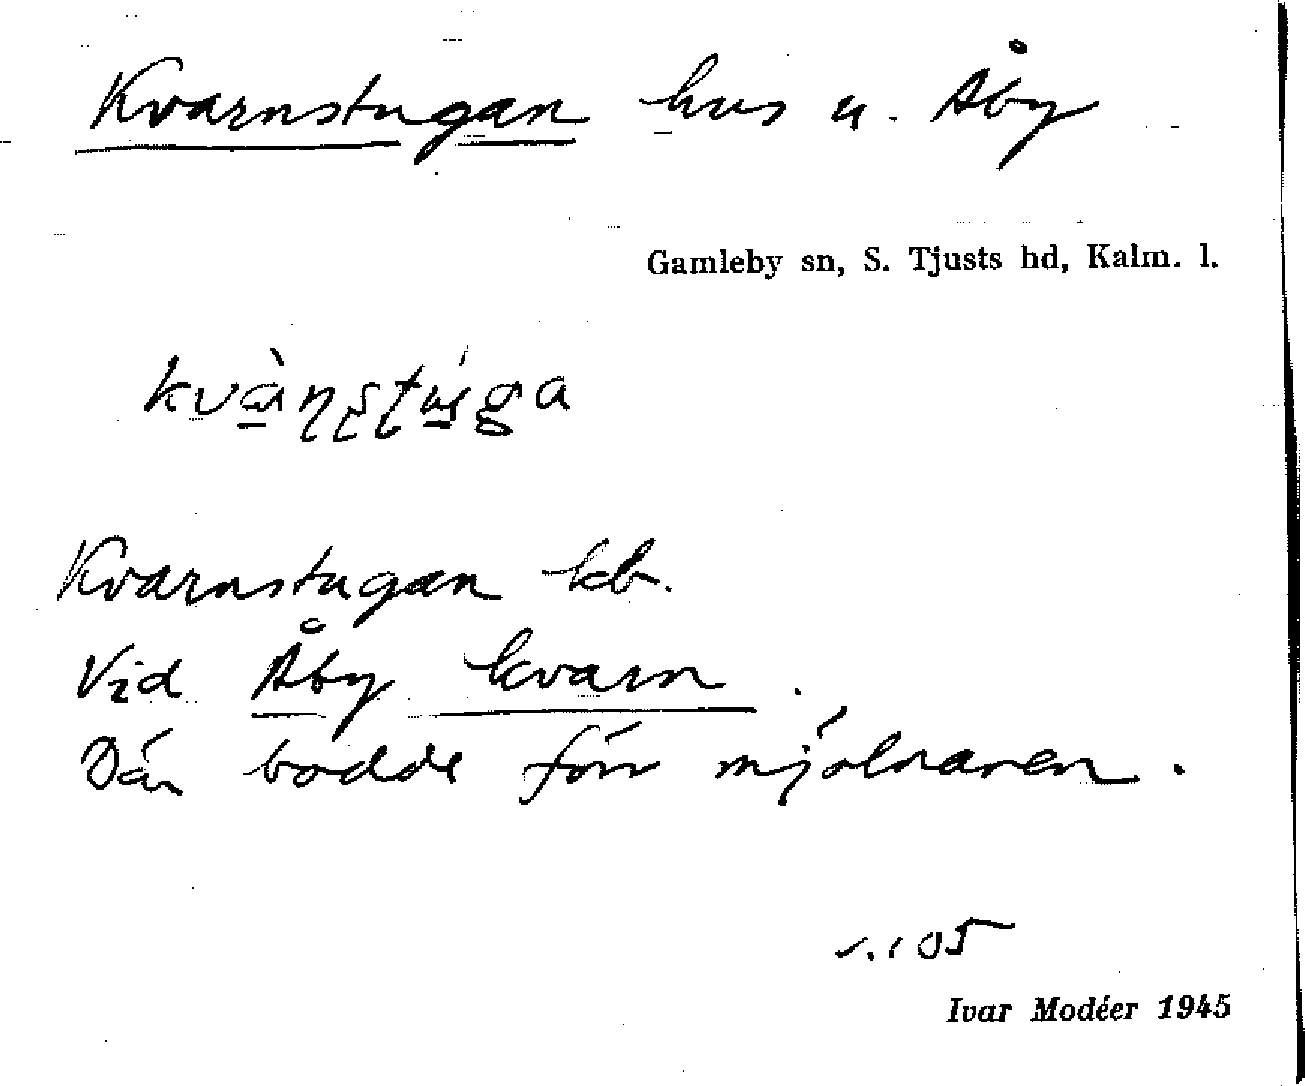 Kvarnstugan hus u. Åby
Gamleby sn, S. Tjusts hd, Kalm. l.
Kvarnstugan
Vid Åby kvarn.
Där bodde förr mjölnaren.
Ivar Modéer 1945